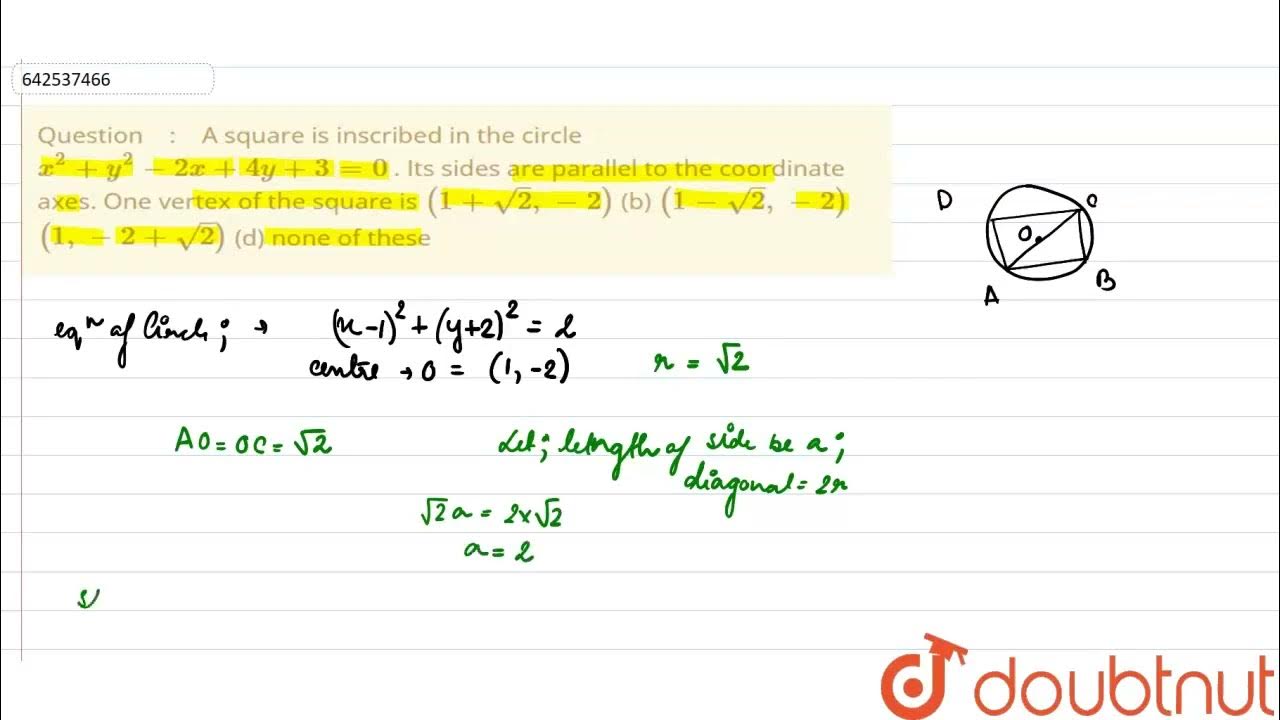 642537466
Question : A square is inscribed in the circle
x² + y² − 2x + 4y + 3 = 0. Its sides are parallel to the coordinate
axes. One vertex of the square is (1 + √2, − 2) (b) (1 − √2, − 2)
(1, − 2 + √2) (d) none of these
D
C
O
A
B
eqⁿ of Circle; → (x-1)² + (y+2)² = 2
centre → O = (1, -2)
r = √2
AO = OC = √2
Let; length of side be a;
diagonal = 2r
√2 a = 2×√2
a = 2
doubtnut